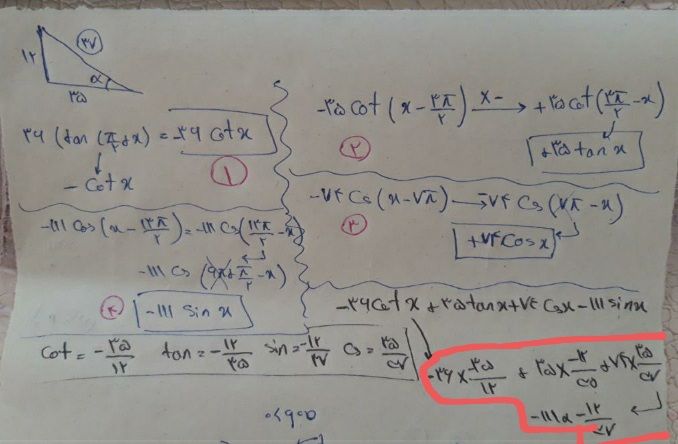 ۳۷
۱۲
α
۳۵
۳۶ (tan (π/۲ + x) = -۳۶ Cot x
- Cot x
۱
-۳۵ Cot (x - ۳π/۲) x- → +۳۵ Cot (۳π/۲ - x)
+۳۵ tan x
۲
-۷۴ Cs (x - ۷π) → -۷۴ Cs (۷π - x)
+۷۴ Cos x
۳
-۱۱۱ Cos (x - ۱۳π/۲) = -۱۱۱ Cs (۱۳π/۲ - x)
-۱۱۱ Cs (۶π + π/۲ - x)
-۱۱۱ Sin x
۴
-۳۶ Cot x + ۳۵ tan x + ۷۴ Cs x - ۱۱۱ sin x
Cot = -۳۵/۱۲ tan = -۱۲/۳۵ sin = -۱۲/۳۷ Cs = ۳۵/۳۷
-۳۶ × -۳۵/۱۲ + ۳۵ × -۱۲/۳۵ + ۷۴ × ۳۵/۳۷
-۱۱۱ × -۱۲/۳۷